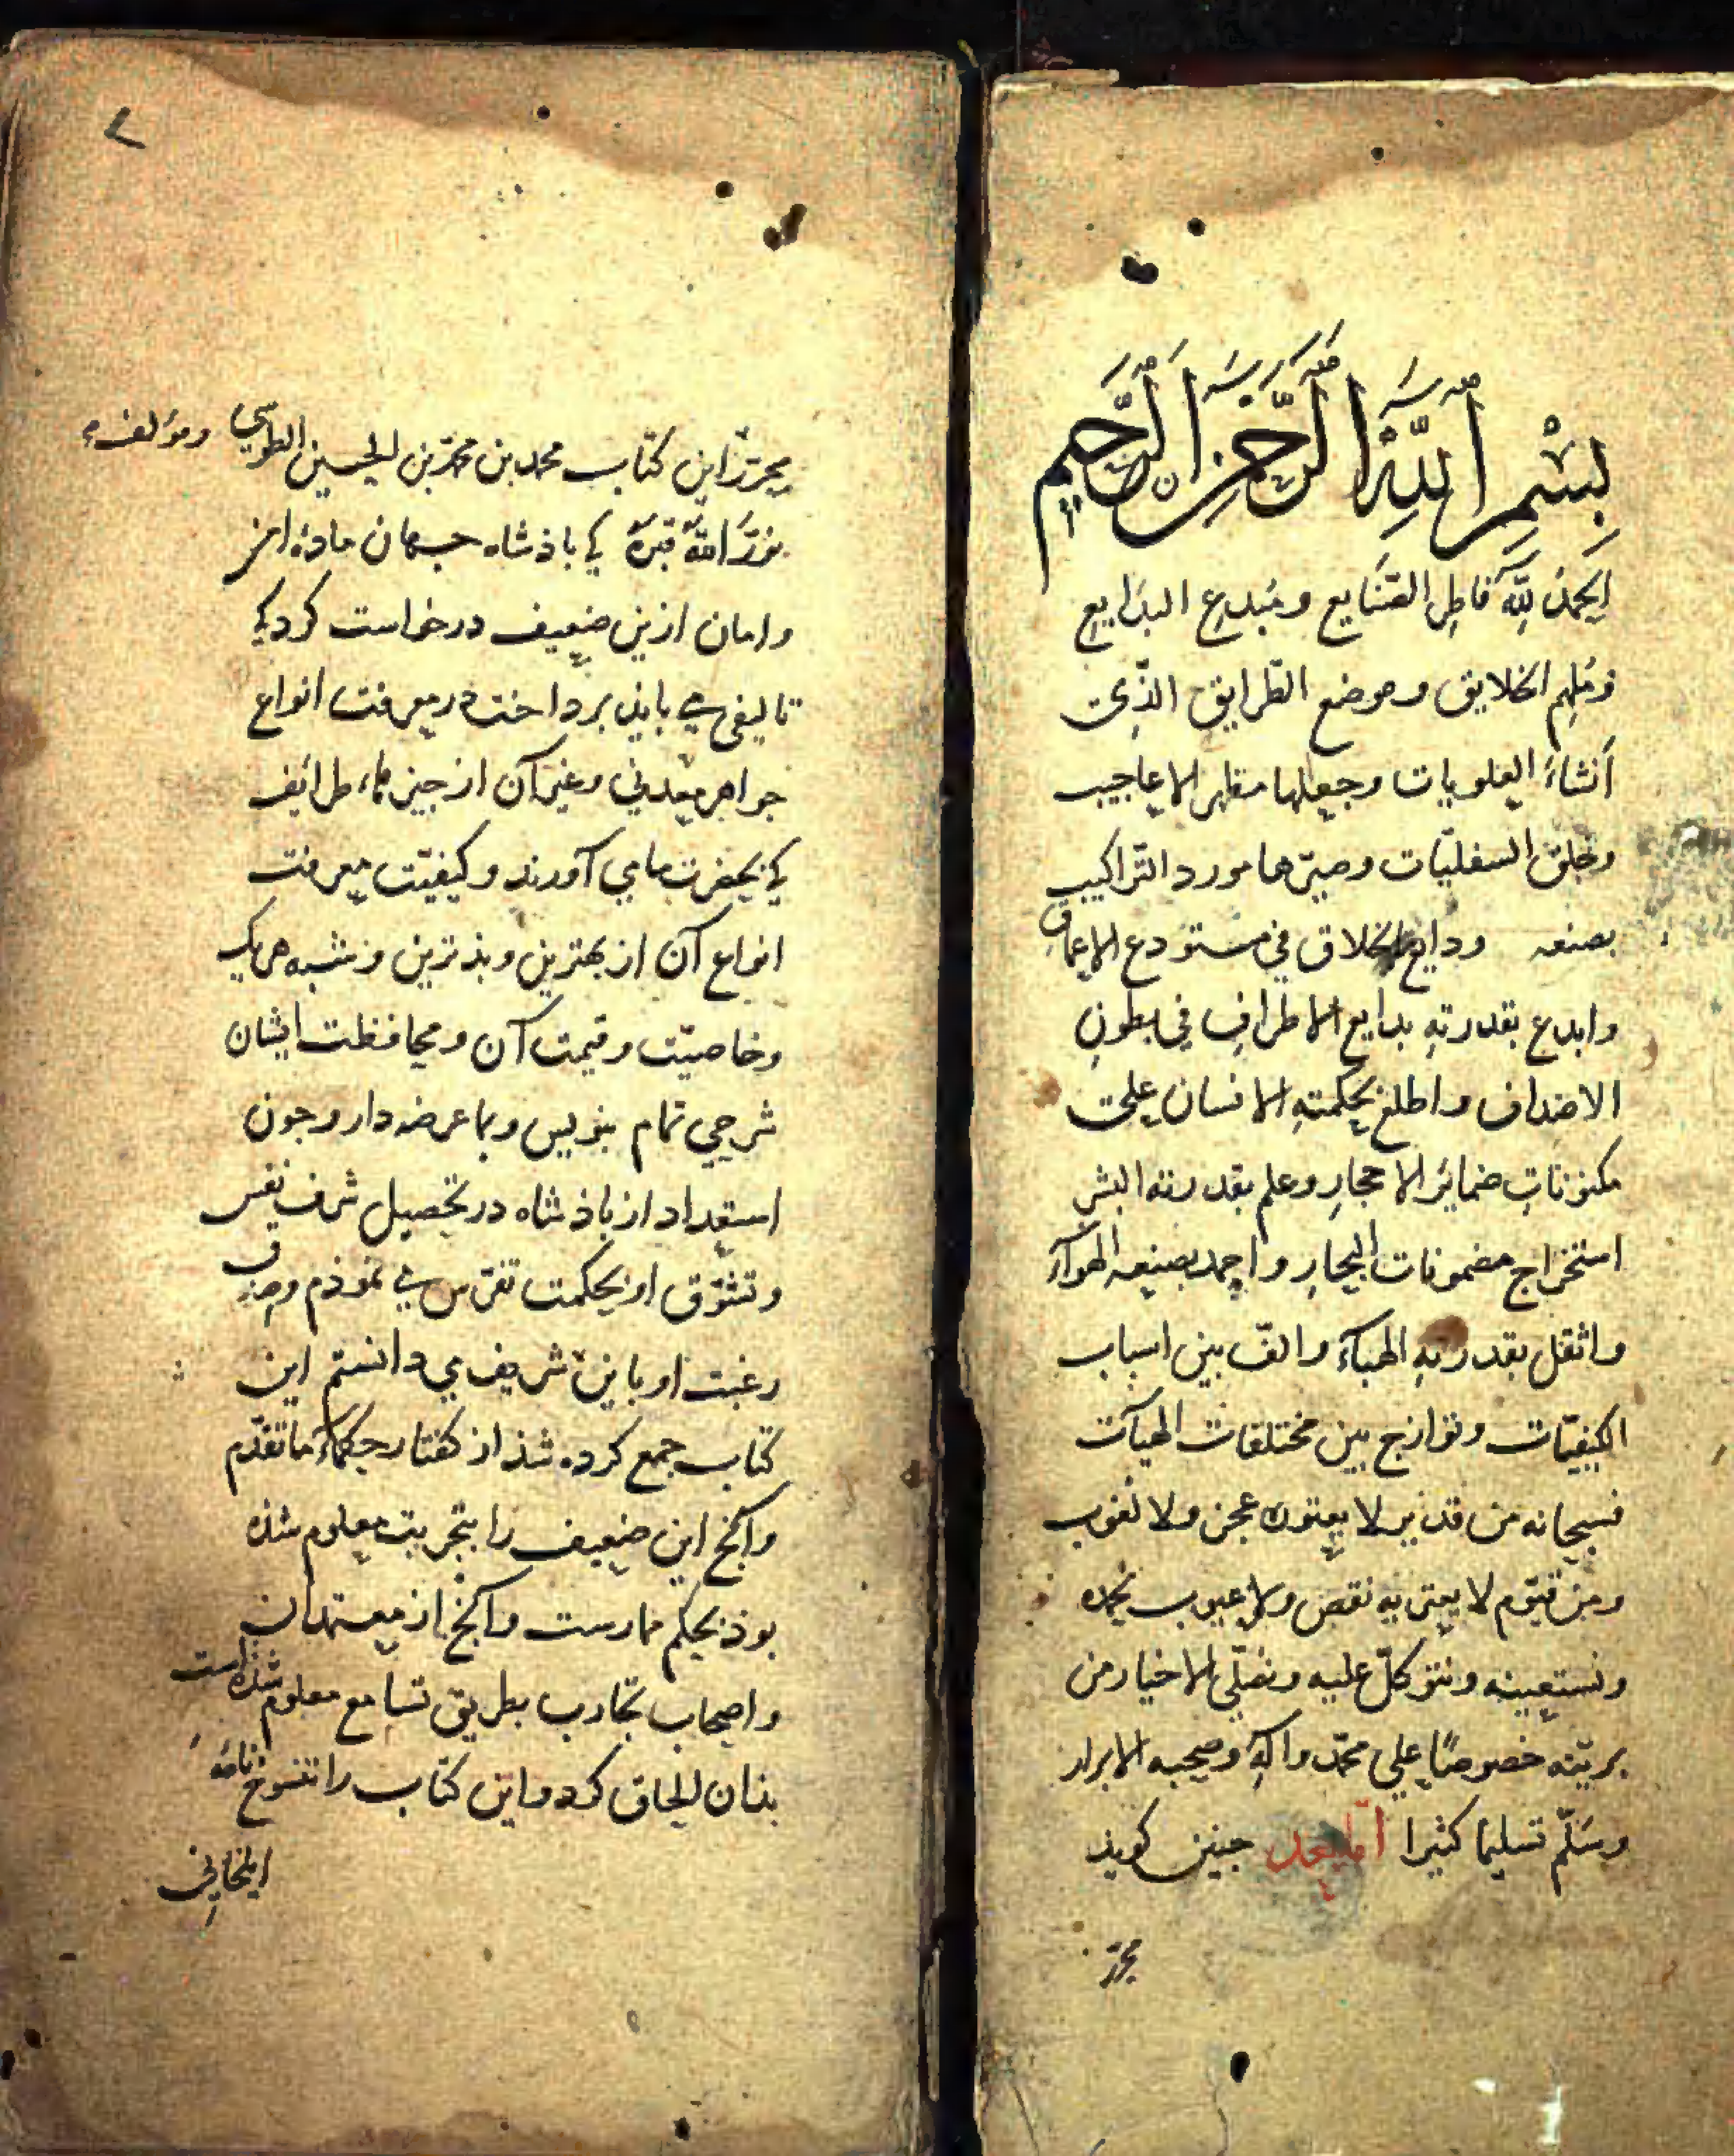 بِسْمِ ٱللَّهِ ٱلرَّحْمَنِ ٱلرَّحِيمِ
الحمد لِلّه فاطر الصّنايع ومُبدع البدَايع
ومُلهم الخلايق وموضع الطّرايق الذّى
أنشاءَ العلويات وجعلها مظهر الاعاجيب
وخلق السفليّات وصيّرها مورد التّراكيب
بصنعه ودايع الاخلاق في مستودع الاعماق
وابدع بقدرتهِ بدايع الاطرافِ في بطونِ
الاصداف واطلع بحكمتهِ الانسان على
مكنونات ضمائر الاحجارِ وعلم بقدرته البشر
استخراج مضمونات البحارِ واجمد بصنعه الهوآءَ
واثقل بقدرتهِ الهبآءَ والّف بين اسباب
الكيفيّات وتوازج بين مختلفات الهيآت
فسبحانه من قدير لا يعتوره عجز ولا لغوب
ومن قيّوم لا يعتريه نقص ولا عيوب نحمده
ونستعينه ونتوكّل عليه ونصلّى الاخيار من
بريّته خصوصًا على محمّد وآلهِ وصحبه الابرار
وسَلّم تسليما كثيرا أمّا بعد جنين كويذ
محرّر
٢
محرّر اين كتاب محمد بن محمّد بن الحسين الطوسي ومؤلف
نوّرَ اللّهُ قبرَهُ كي باذشاه جهان مادۀ امن
وامان ازين ضعيف درخواست كرد كي
تاليفى مي بايذ برداخت در معرفت انواع
جواهر معدني وغير آن از جيزهاء طرائف
كي بحضرت ما مي آورند وكيفيّت معرفت
انواع آن از بهترين وبذترين وشبه هريك
وخاصيّت وقيمت آن ومحافظت ايشان
شرحي تمام بنويس وبما عرضه دار وجون
استعداد از باذشاه در تحصيل شرف نفس
وتشوّق او بحكمت تفرّس مي نموذم وصدق
رغبت او باين شريف مى دانستم اين
كتاب جمع كرده شذ از كفتار حكماءَ ما تقدّم
وآنج اين ضعيف را بتجربت معلوم شذه
بوذ بحكم ممارست وآنج از معتمدان
واصحاب تجارب بطريق تسامع معلوم شذه است
بذان الحاق كرد واين كتاب را تنسوخ نامۀ
ايلخاني